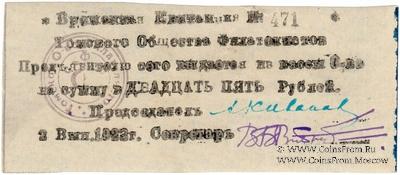 * Временная Квитанция № 471
Томского Общества Филателистов
Предъявителю сего выдается из кассы О-ва
на сумму в ДВАДЦАТЬ ПЯТЬ Рублей.
Председатель
2 Вып. 1922г. Секретарь
www.CoinsFrom.Ru
CoinsFrom.Moscow